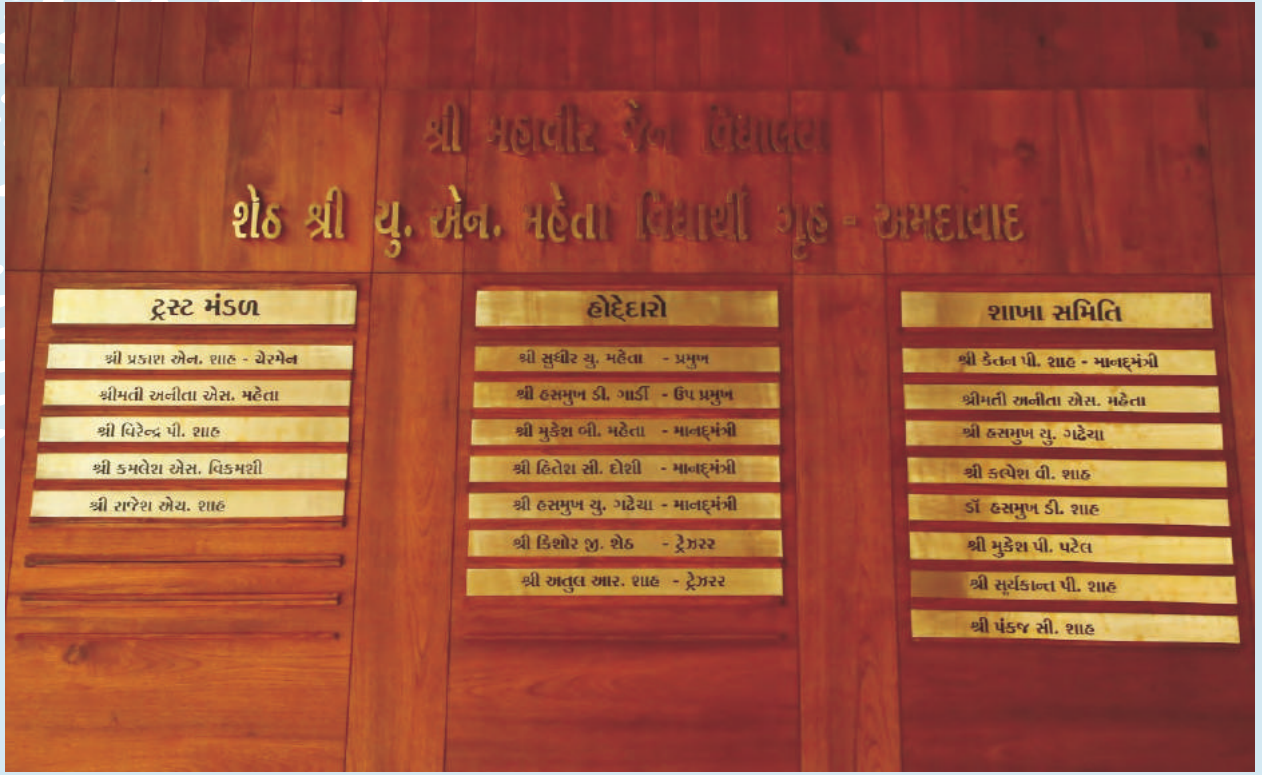 શ્રી મહાવીર જૈન વિદ્યાલય
શેઠ શ્રી યુ. એન. મહેતા વિદ્યાર્થી ગૃહ - અમદાવાદ
ટ્રસ્ટ મંડળ
શ્રી પ્રકાશ એન. શાહ - ચેરમેન
શ્રીમતી અનીતા એસ. મહેતા
શ્રી વિરેન્દ્ર પી. શાહ
શ્રી કમલેશ એસ. વિકમશી
શ્રી રાજેશ એચ. શાહ
હોદ્દેદારો
શ્રી સુધીર યુ. મહેતા - પ્રમુખ
શ્રી હસમુખ ડી. ગાર્ડી - ઉપ પ્રમુખ
શ્રી મુકેશ બી. મહેતા - માનદ્મંત્રી
શ્રી હિતેશ સી. દોશી - માનદ્મંત્રી
શ્રી હસમુખ યુ. ગઢેચા - માનદ્મંત્રી
શ્રી કિશોર જી. શેઠ - ટ્રેઝરર
શ્રી અતુલ આર. શાહ - ટ્રેઝરર
શાખા સમિતિ
શ્રી કેતન પી. શાહ - માનદ્મંત્રી
શ્રીમતી અનીતા એસ. મહેતા
શ્રી હસમુખ યુ. ગઢેચા
શ્રી કલ્પેશ વી. શાહ
ડૉ હસમુખ ડી. શાહ
શ્રી મુકેશ પી. પટેલ
શ્રી સૂર્યકાન્ત પી. શાહ
શ્રી પંકજ સી. શાહ